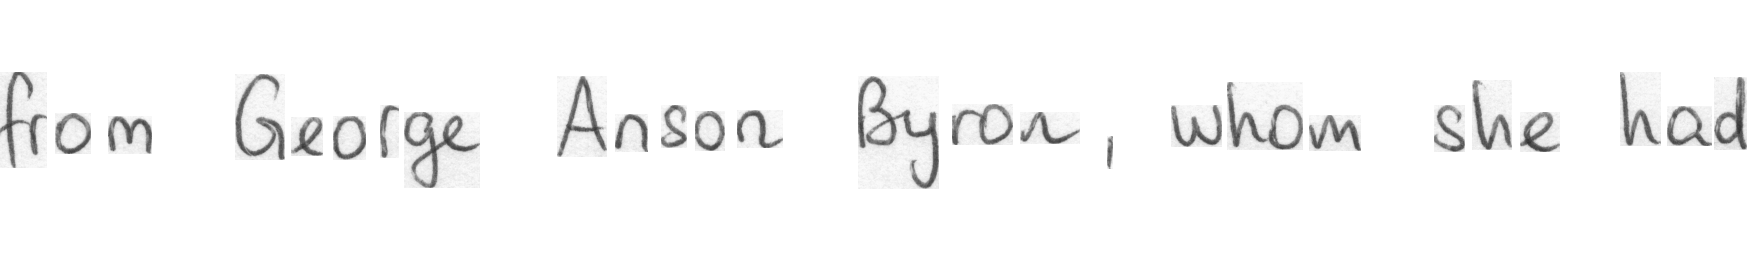 from George Anson Byron, whom she had